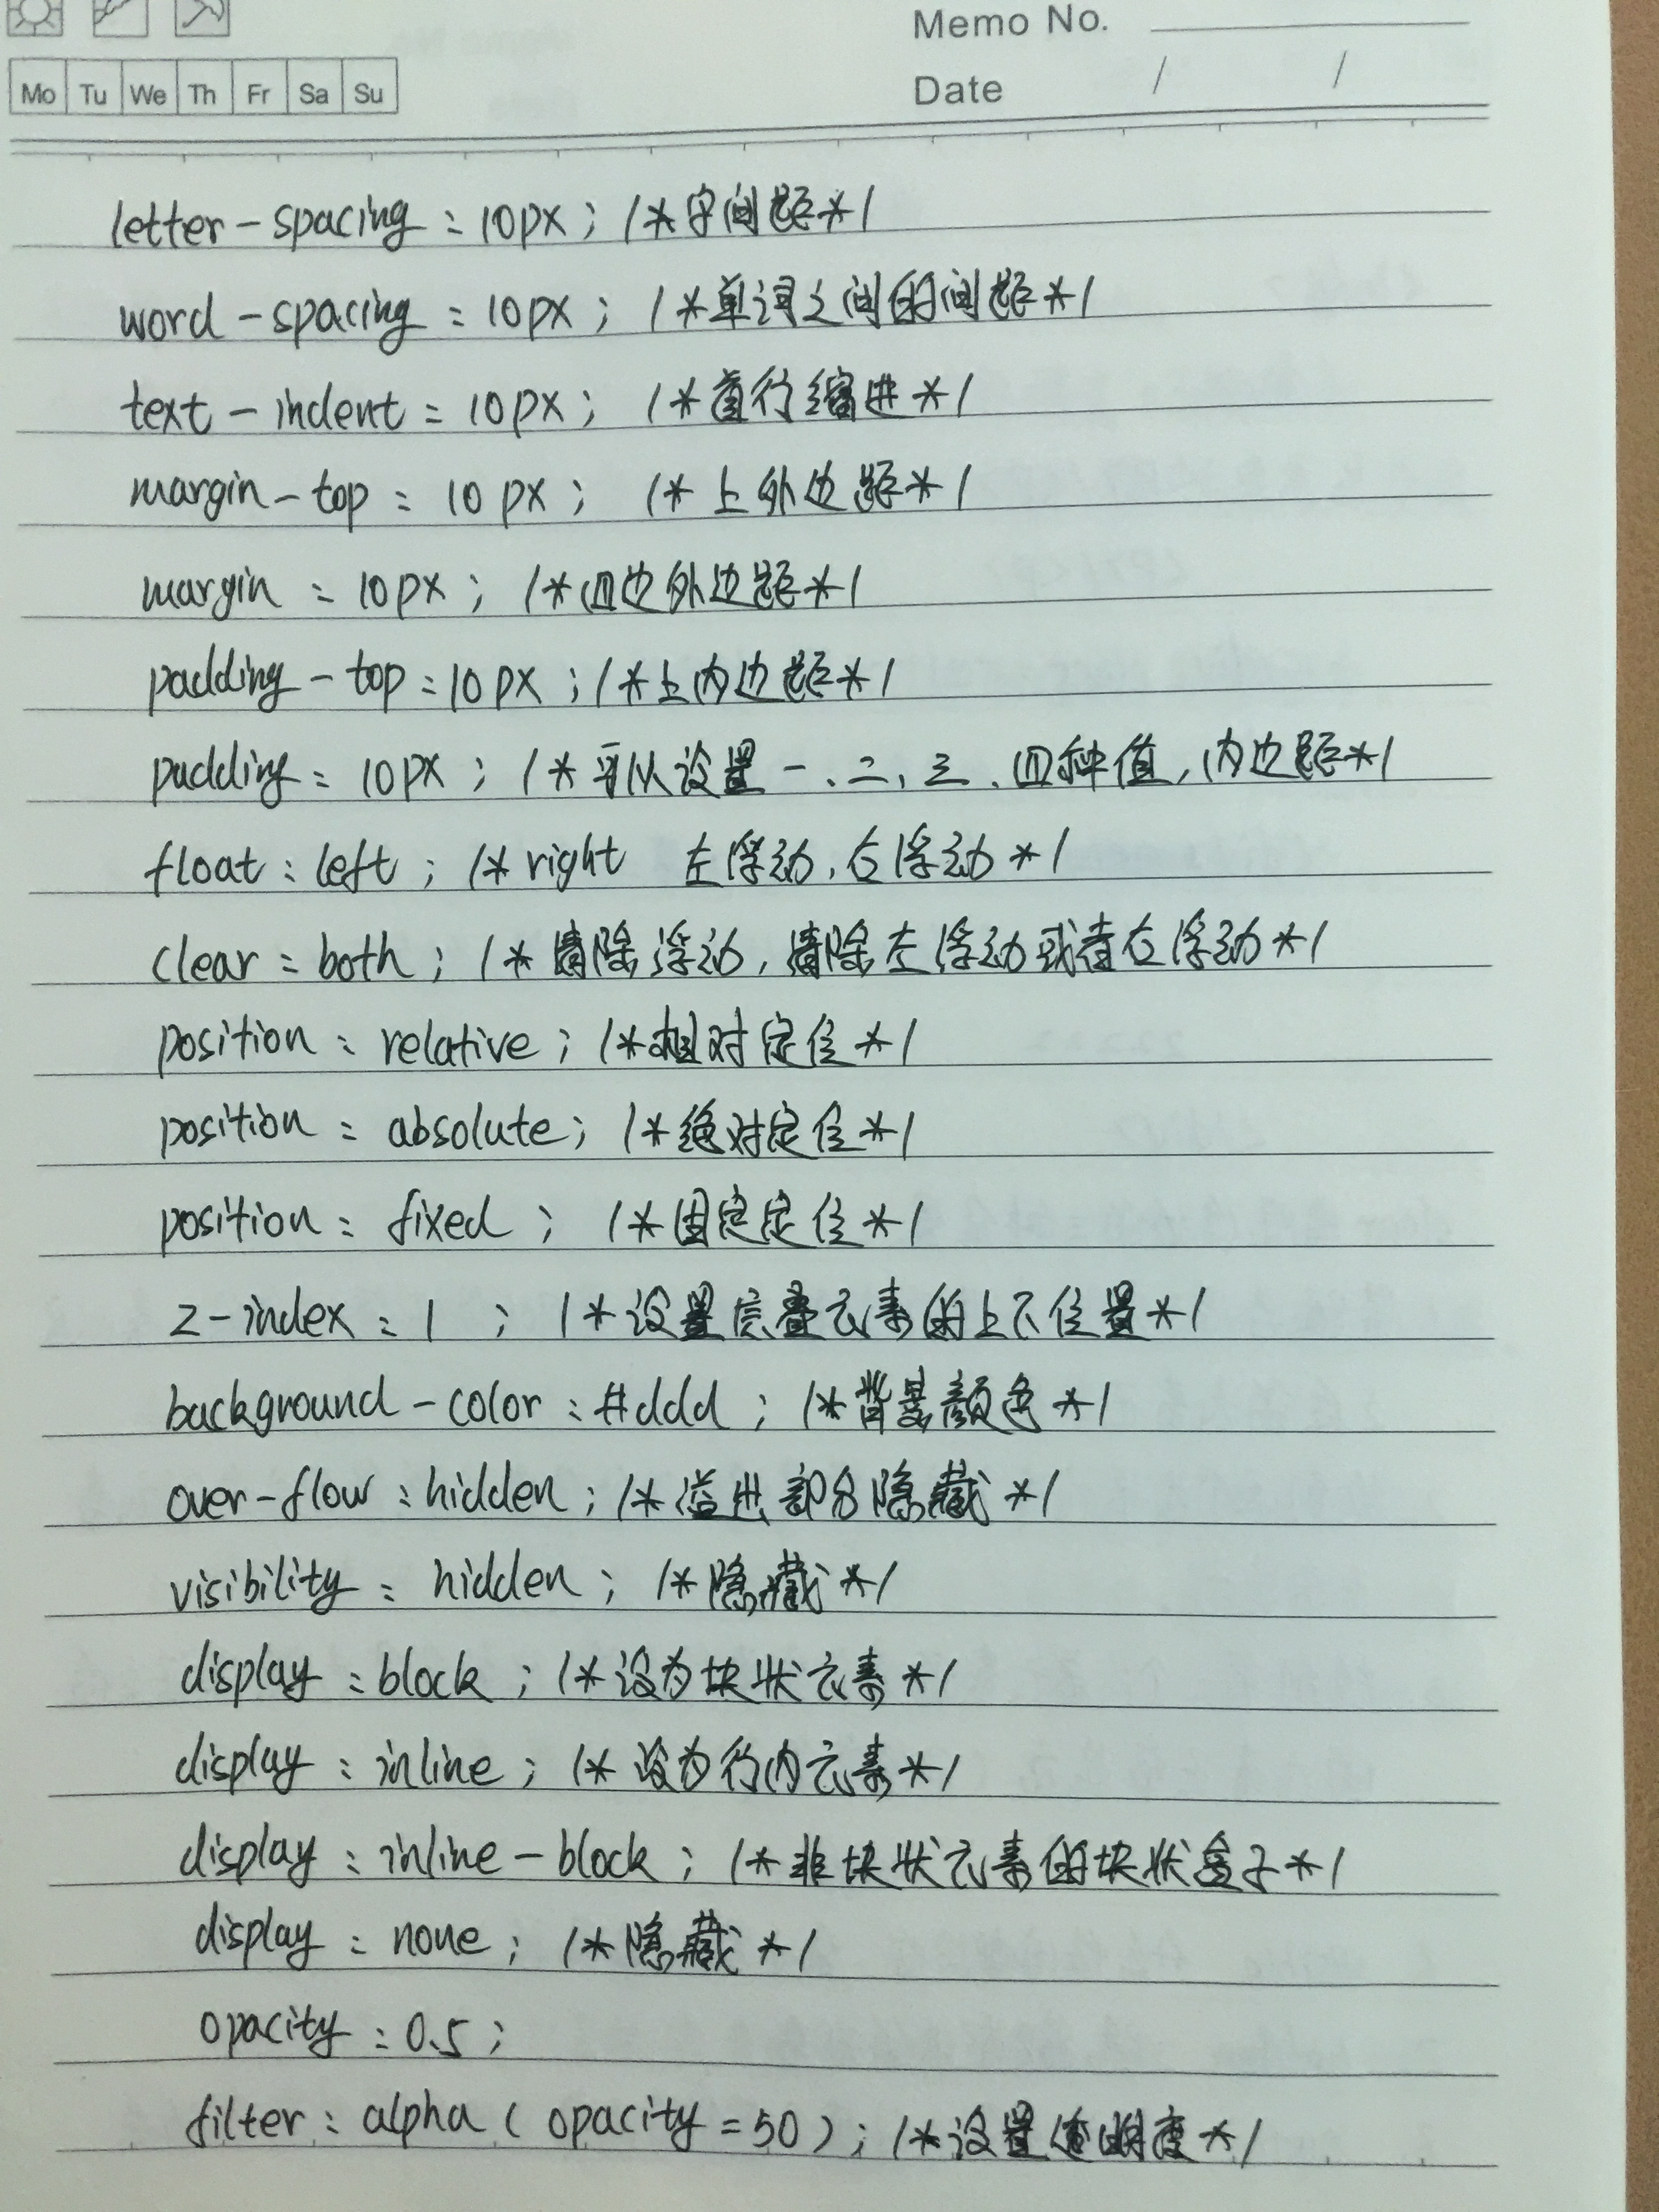 Memo No.
Mo Tu We Th Fr Sa Su
Date / /
letter-spacing : 10px ; /*字间距*/
word-spacing : 10px ; /*单词之间的间距*/
text-indent : 10px ; /*首行缩进*/
margin-top : 10px ; /*上外边距*/
margin : 10px ; /*四边外边距*/
padding-top : 10px ; /*上内边距*/
padding : 10px ; /*可以设置一、二、三、四种值,内边距*/
float : left ; /*right 左浮动,右浮动*/
clear : both ; /*清除浮动,清除左浮动或者右浮动*/
position : relative ; /*相对定位*/
position : absolute ; /*绝对定位*/
position : fixed ; /*固定定位*/
z-index : 1 ; /*设置层叠元素的上下位置*/
background-color : #ddd ; /*背景颜色*/
over-flow : hidden ; /*溢出部分隐藏*/
visibility : hidden ; /*隐藏*/
display : block ; /*设为块状元素*/
display : inline ; /*设为行内元素*/
display : inline-block ; /*非块状元素的块状盒子*/
display : none ; /*隐藏*/
opacity : 0.5 ;
filter : alpha ( opacity = 50 ) ; /*设置透明度*/